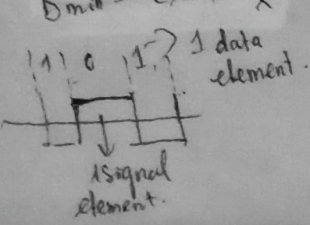 Dmin
1 0 1 1 data
element.
1 signal
element.